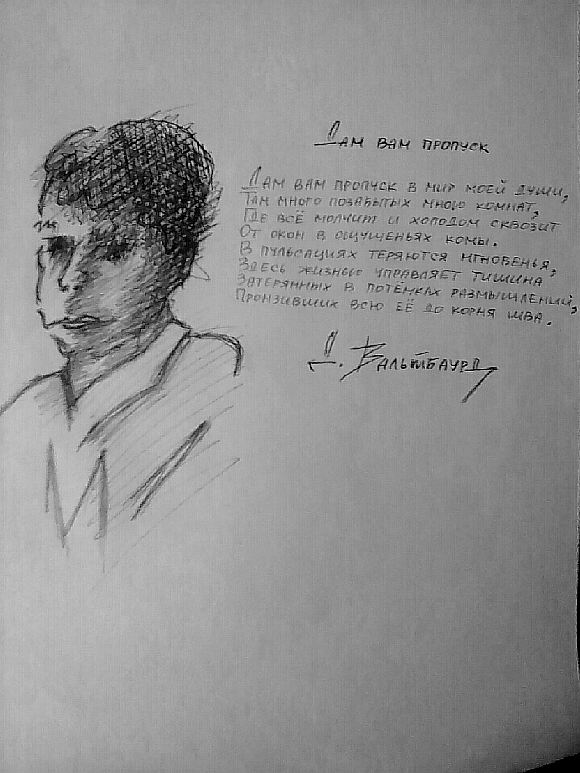 Дам вам пропуск
Дам вам пропуск в мир моей души,
Там много позабытых мною комнат,
Где всё молчит и холодом сквозит
От окон в ощущеньях комы.
В пульсациях теряются мгновенья,
Здесь жизнью управляет тишина
Затерянных в потёмках размышлений,
Пронзивших всю её до корня шва.
Д. Вальтбаурд